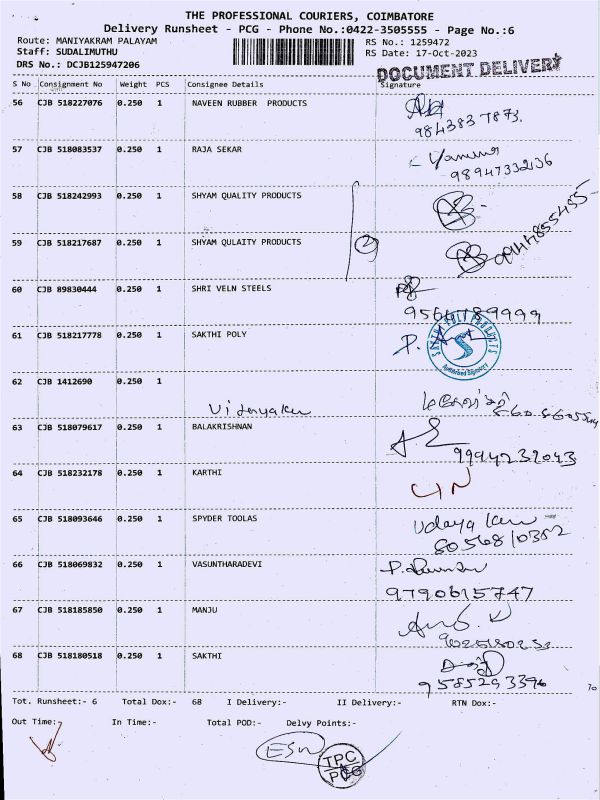 THE PROFESSIONAL COURIERS, COIMBATORE
Delivery Runsheet - PCG - Phone No.:0422-3505555 - Page No.:6
Route: MANIYAKRAM PALAYAM RS No.: 1259472
Staff: SUDALIMUTHU RS Date: 17-Oct-2023
DRS No.: DCJB125947206 DOCUMENT DELIVERY
S No Consignment No Weight PCS Consignee Details Signature
56 CJB 518227076 0.250 1 NAVEEN RUBBER PRODUCTS
9843837873
57 CJB 518083537 0.250 1 RAJA SEKAR
98947332136
58 CJB 518242993 0.250 1 SHYAM QUALITY PRODUCTS
59 CJB 518217687 0.250 1 SHYAM QULAITY PRODUCTS 2
60 CJB 89830444 0.250 1 SHRI VELN STEELS
61 CJB 518217778 0.250 1 SAKTHI POLY P. SAKTHI POLY PRODUCTS Authorised Signatory
62 CJB 1412690 0.250 1
Vidhyaku
63 CJB 518079617 0.250 1 BALAKRISHNAN
9994232043
64 CJB 518232178 0.250 1 KARTHI
65 CJB 518093646 0.250 1 SPYDER TOOLAS Udaya
8056810352
66 CJB 518069832 0.250 1 VASUNTHARADEVI
9790615747
67 CJB 518185850 0.250 1 MANJU
68 CJB 518180518 0.250 1 SAKTHI
9585293396
Tot. Runsheet:- 6 Total Dox:- 68 I Delivery:- II Delivery:- RTN Dox:-
Out Time:- In Time:- Total POD:- Delvy Points:-
ESW
TPC
PCG